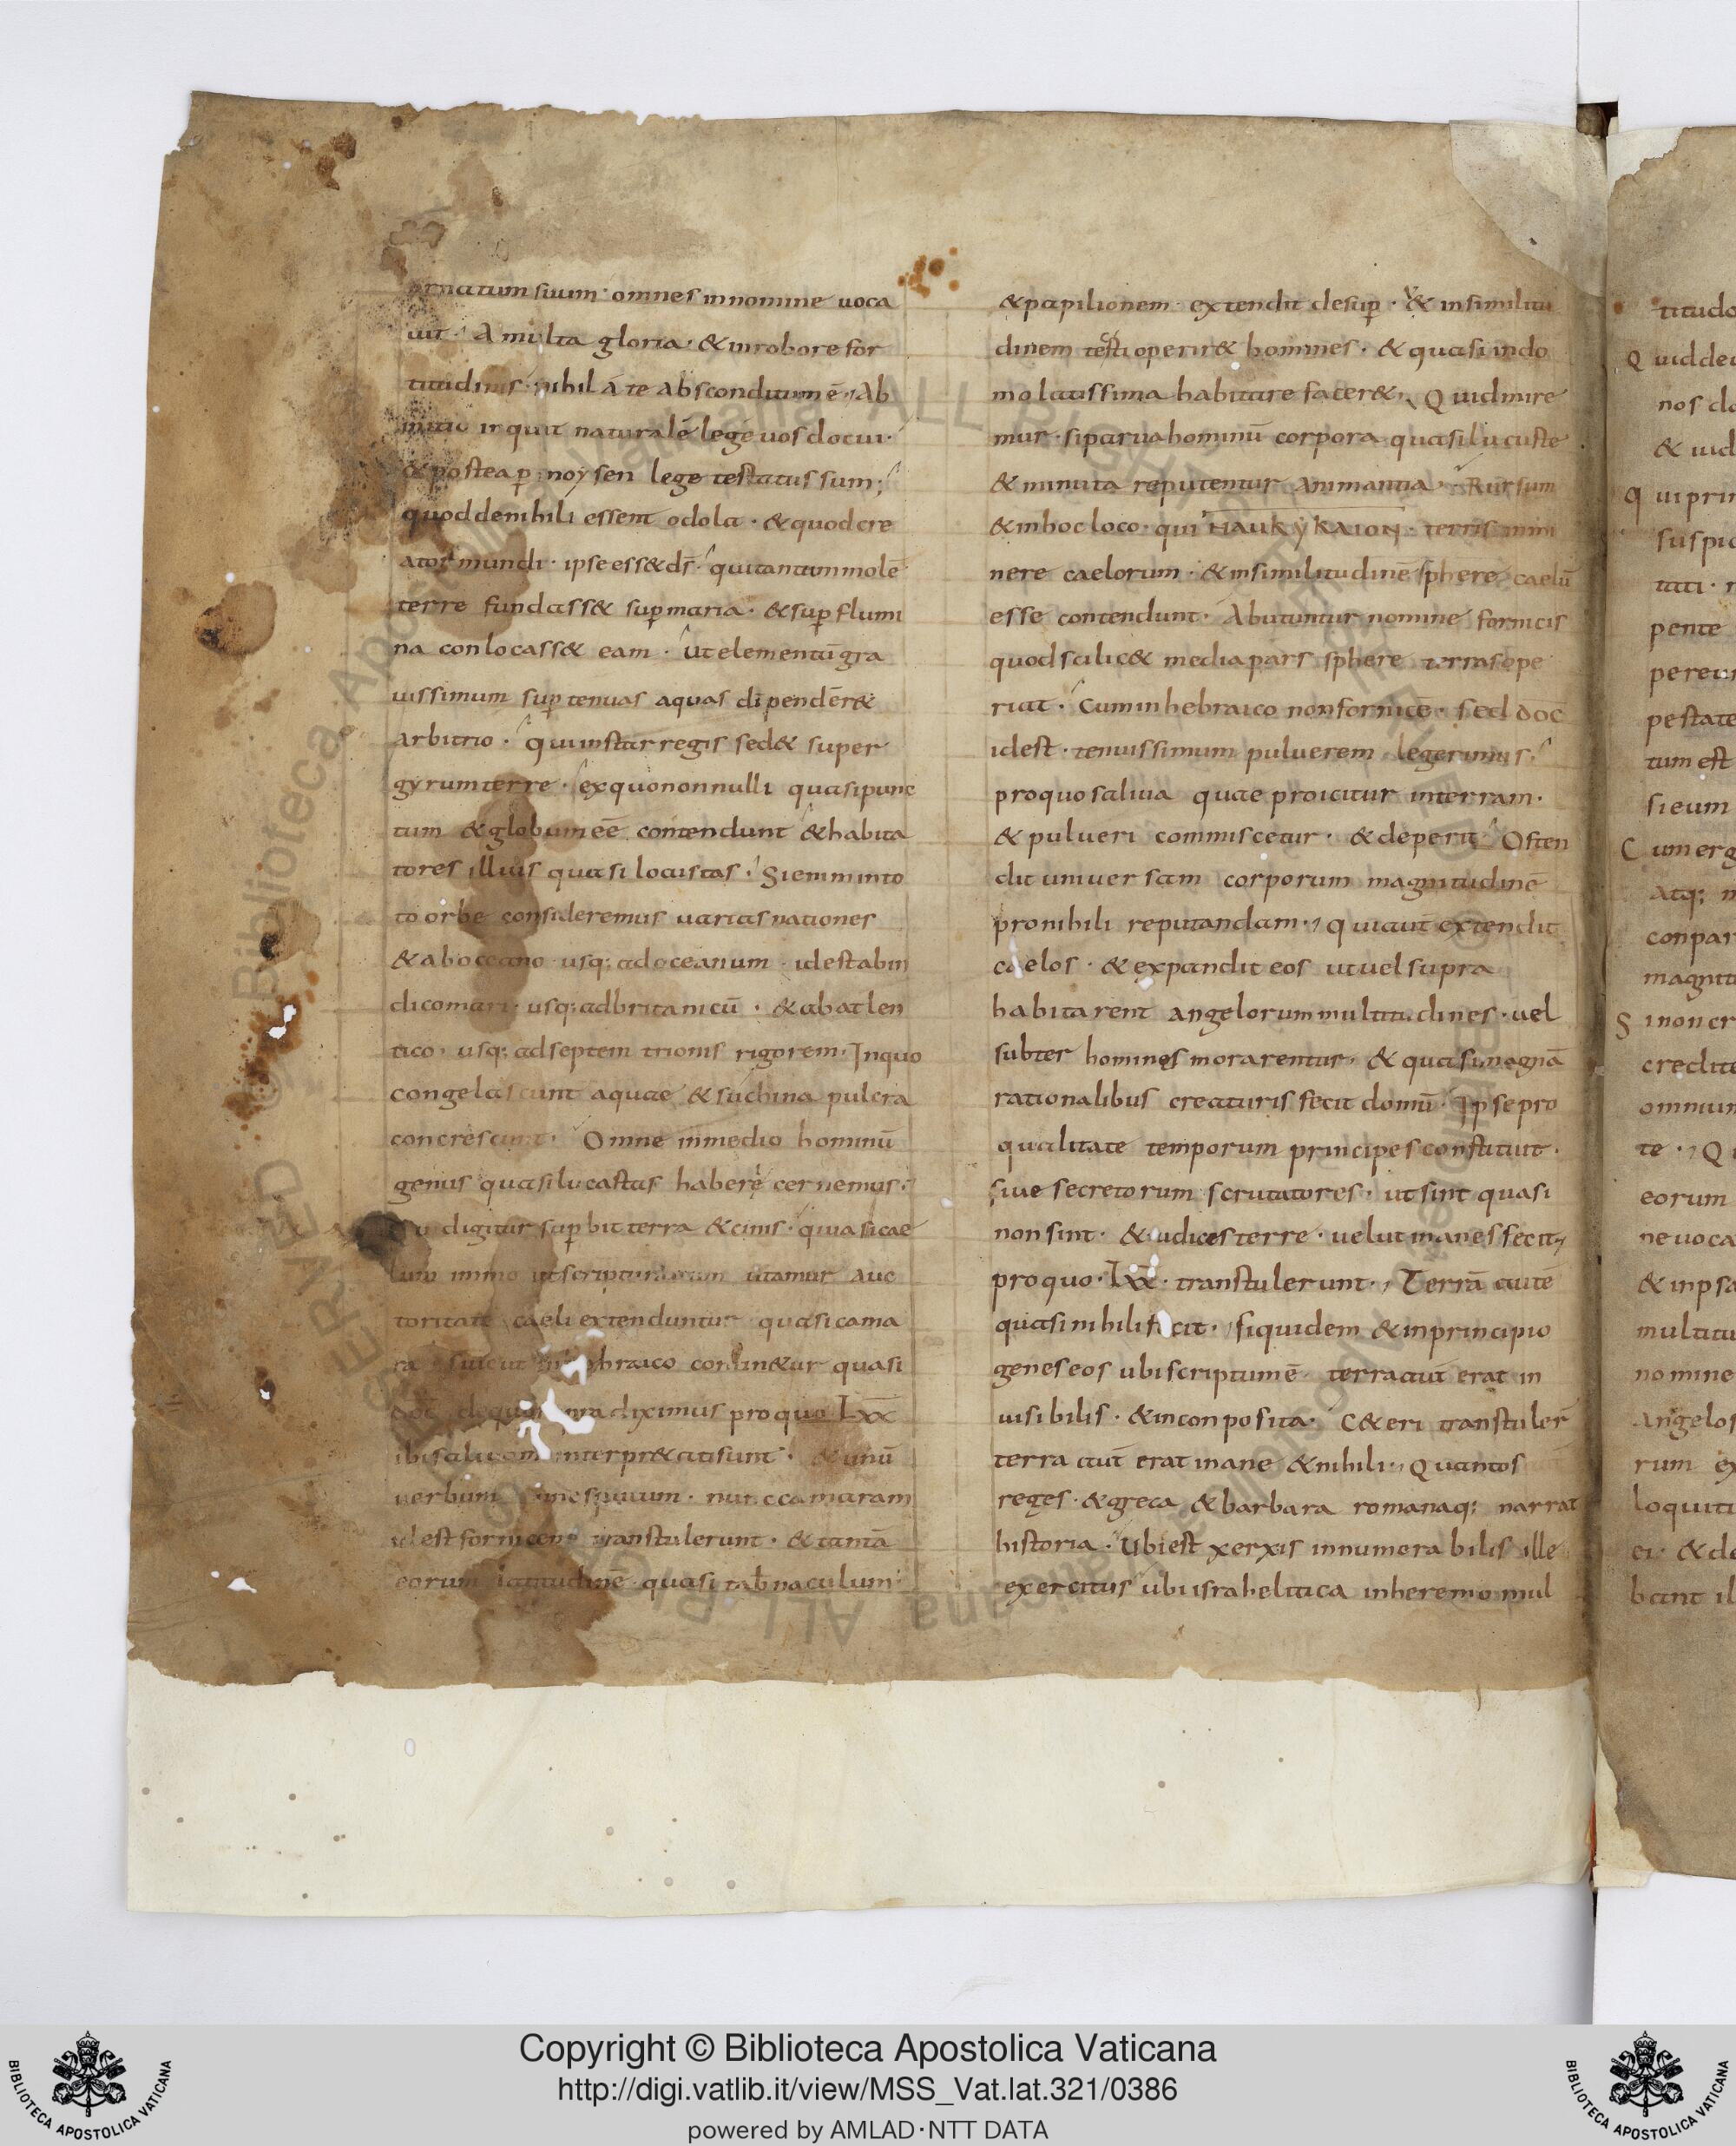 ornatum suum · omnes in nomine uoca
uit · A multa gloria · & in robore for
titudinis · nihil á te absconditum ē · Ab
initio inquit naturalē legē uos docui ·
& postea p̄ moysen lege testatus sum ;
quod de nihili essent odola · & quod cre
ator mundi · ipse ess& d̄s · qui tantum molē
terre fundass& sup̄ maria · & sup̄ flumi
na conlocass& eam · ut elementū gra
uissimum sup̄ tenuas aquas di pendēr&
arbitrio · qui instar regis sed& super
gyrum terre · ex quo non nulli quasi punc
tum & globum eē contendunt & habita
tores illius quasi locustas · Si emm in to
to orbe consideremus uarias nationes
& ab oceano usq; ad oceanum · idest ab in
dico mari · usq; ad britanicū · & ab atlen
tico · usq; ad septem trionis rigorem · In quo
congelascunt aquae & suchina pulcra
concrescunt · Omne in medio hominū
genus quasi lucastas habere cernemus ·
digitur sup̄bit terra & cinis · quia si cae
lum immo ut scripturarum utamur auc
toritate caeli extenduntur quasi cama
ra · siue ut in hebraico contin&ur quasi
diximus pro quo Lxx
ibi saliuam interpr&ati sunt · & unū
uerbum nunc camaram
idest fornicem transtulerunt · & tantā
eorum latitudinē quasi tab̄naculum
& papilionem extendit desup̄ · & in similitu
dinem testi operir& homines · & quasi in do
mo latissima habitare facer& · Quid mire
mur · si parua hominū corpora quasi lucuste
& minuta reputentur animantia · Rursum
& in hoc loco · qui NAUKYKAION · terris inmi
nere caelorum · & in similitudinē sphere caelū
esse contendunt · Abutuntur nomine fornicis
quod scilic& media pars sphere terras ope
riat · Cum in hebraico non fornicē · sed doc
idest · tenuissimum puluerem legerimus ·
pro quo saliua quae proicitur in terram ·
& pulueri commiscetur · & deperit · Osten
dit uniuersam corporum magnitudinē
pro nihili reputandam · qui aut extendit
caelos · & expandit eos ut uel supra
habitarent angelorum multitudines · uel
subter homines morarentur · & quasi magnā
rationalibus creaturis fecit domū · Ipse pro
qualitate temporum principes constituit ·
siue secretorum scrutatores · ut sint quasi
non sint · & iudices terre · uelut inanes fecit
pro quo · Lxx · transtulerunt · Terrā autē
quasi nihili fecit · siquidem & in principio
geneseos ubi scriptum ē terra aut erat in
uisibilis · & inconposita · C&eri transtuler̄
terra aut̄ erat inane & nihili · Quantos
reges · & greca & barbara romanaq; narrat
historia · Ubi est xerxis innumerabilis ille
exercitus ubi israhelitica in heremo mul
titudo
Q uid de
nos
& uid
Q ui prin
suspic
tati ·
pente
pereun
pestate
tum est
si eum
C um erg
atq;
conpar
magnitu
S i non cr
credite
omnium
te · Q
eorum
ne uoca
& in psa
multitu
nomine
Angelos
rum ex
loquitu
ei · & de
bant il
Copyright © Biblioteca Apostolica Vaticana
http://digi.vatlib.it/view/MSS_Vat.lat.321/0386
powered by AMLAD·NTT DATA
BIBLIOTECA APOSTOLICA VATICANA
BIBLIOTECA APOSTOLICA VATICANA